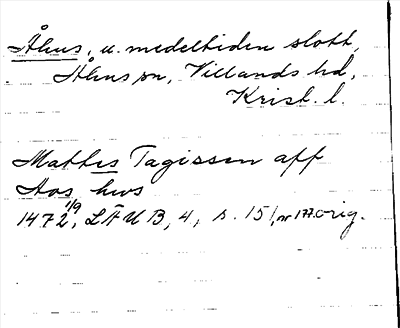 Åhus, u. medeltiden slott,
Åhus sn, Villands hd,
Krist. l.
Mattis Tagissen aff
Aos hws
1472 1/9, LÄUB, 4, s. 151, nr 177. orig.